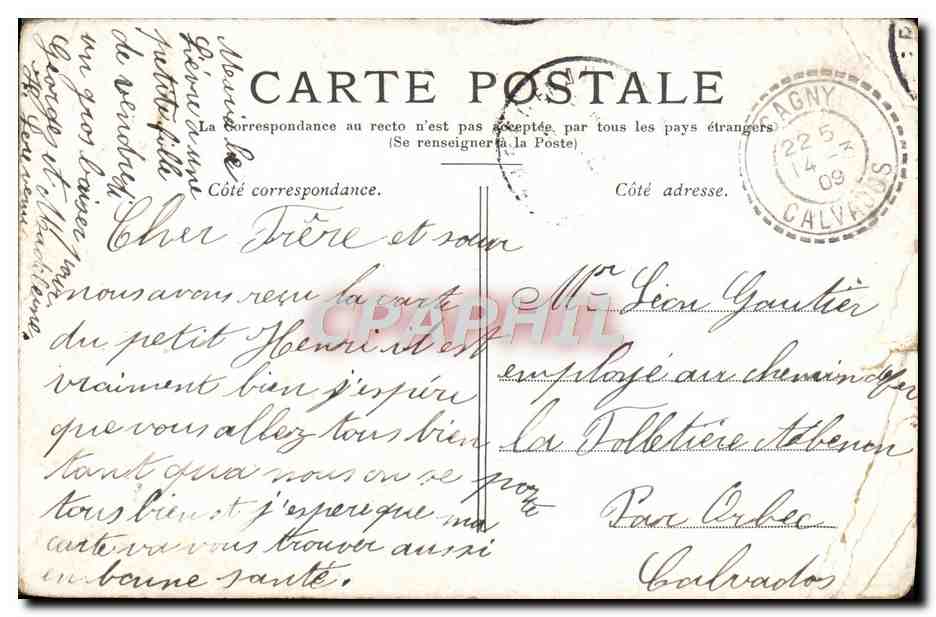 CARTE POSTALE
La Correspondance au recto n'est pas acceptée par tous les pays étrangers
(Se renseigner à la Poste)
Côté correspondance.
Côté adresse.
CAGNY
22 5
14 -3
09
CALVADOS
Cher Frêre et sœur
nous avons reçu la carte
du petit Henri il est
vraiment bien j'espére
que vous allez tous bien
tant qua nous on se porte
tous bien et j'espere que ma
carte va vous trouver aussi
en bonne santé.
Mr Léon Gautier
employé au chemin de fer
la Folletière Abenon
Par Orbec
Calvados
une
petite fille
de vendredi
un gros baiser pour
George et Madeleine,
CPAPHIL